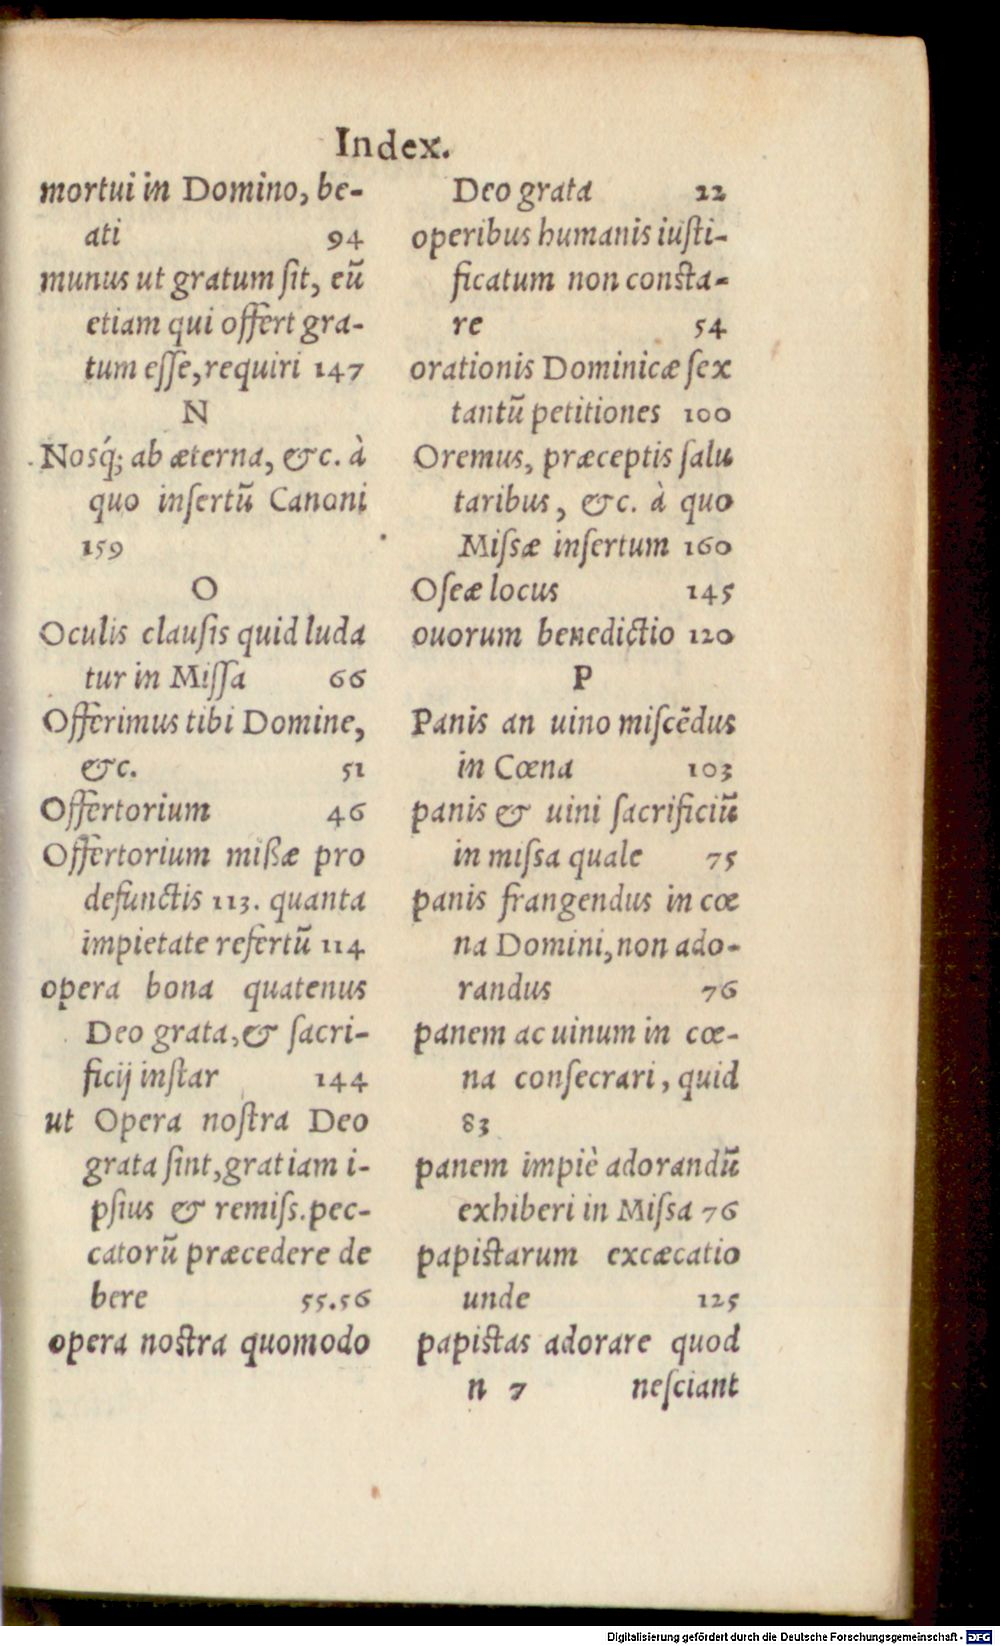 Index.
mortui in Domino, be-
ati 94
munus ut gratum ſit, eũ
etiam qui offert gra-
tum eſſe, requiri 147
N
Nosq́; ab æterna, &c. à
quo inſertũ Canoni
159
O
Oculis clauſis quid luda
tur in Miſſa 66
Offerimus tibi Domine,
&c. 51
Offertorium 46
Offertorium mißæ pro
defunctis 113. quanta
impietate refertũ 114
opera bona quatenus
Deo grata, & ſacri-
ficij inſtar 144
ut Opera noſtra Deo
grata ſint, gratiam i-
pſius & remiſs. pec-
catorũ præcedere de
bere 55.56
opera noſtra quomodo
Deo grata 22
operibus humanis iuſti-
ficatum non conſta-
re 54
orationis Dominicæ ſex
tantũ petitiones 100
Oremus, præceptis ſalu
taribus, &c. à quo
Miſsæ inſertum 160
Oſeæ locus 145
ouorum benedictio 120
P
Panis an uino miſcẽdus
in Cœna 103
panis & uini ſacrificiũ
in miſsa quale 75
panis frangendus in cœ
na Domini, non ado-
randus 76
panem ac uinum in cœ-
na conſecrari, quid
83
panem impiè adorandũ
exhiberi in Miſsa 76
papiſtarum excæcatio
unde 125
papiſtas adorare quod
n 7 neſciant
Digitalisierung gefördert durch die Deutsche Forschungsgemeinschaft - DFG